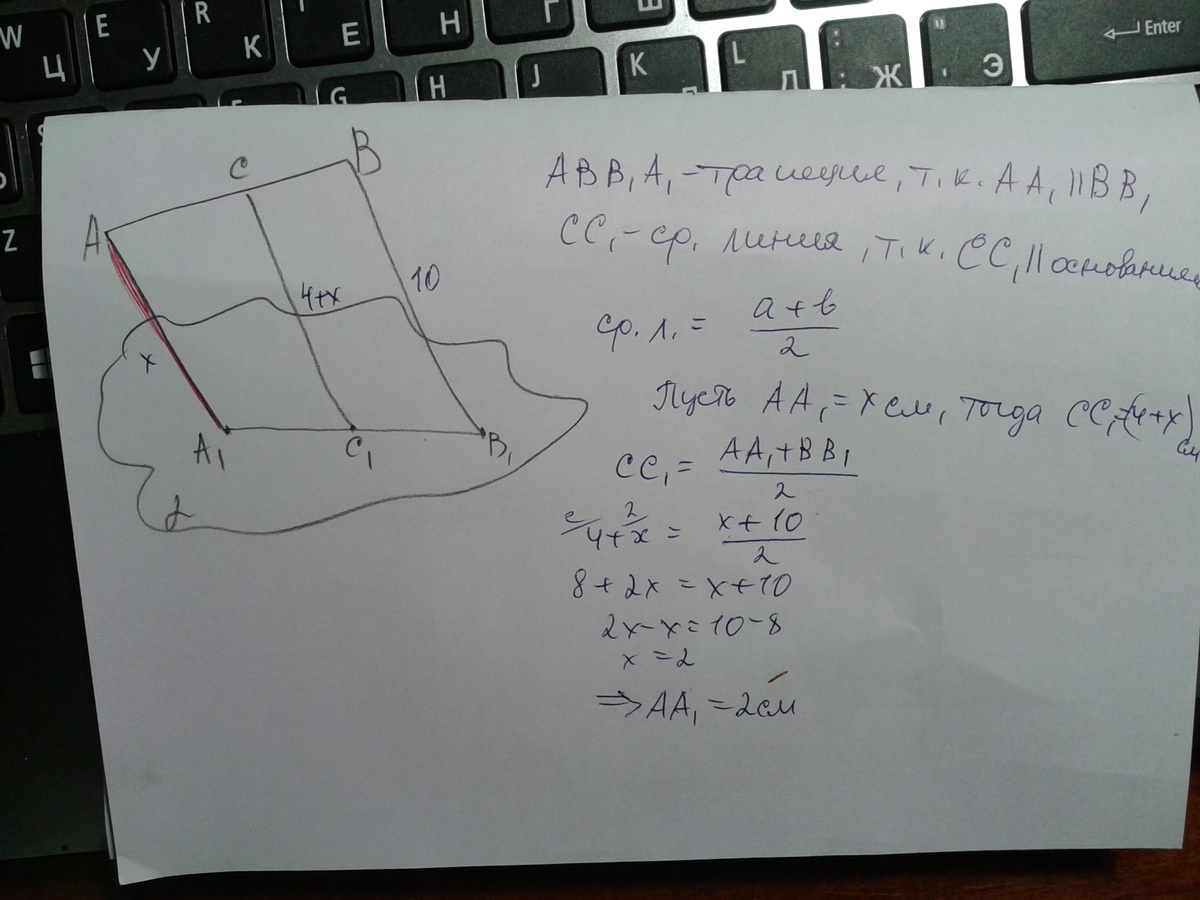 W
Ц
E
У
R
К
Е
Н
Г
Ш
G
H
J
K
L
Д
Ж
Э
Enter
Z
C
B
A
4+x
10
x
A₁
C₁
B₁
α
ABB₁A₁ - трапеция, т.к. AA₁ || BB₁
CC₁ - ср. линия, т.к. CC₁ || основаниям
ср. л. = a + b / 2
Пусть AA₁ = x см, тогда CC₁ = (4+x) см
CC₁ = AA₁ + BB₁ / 2
4 + x = x + 10 / 2
8 + 2x = x + 10
2x - x = 10 - 8
x = 2
⇒ AA₁ = 2 см